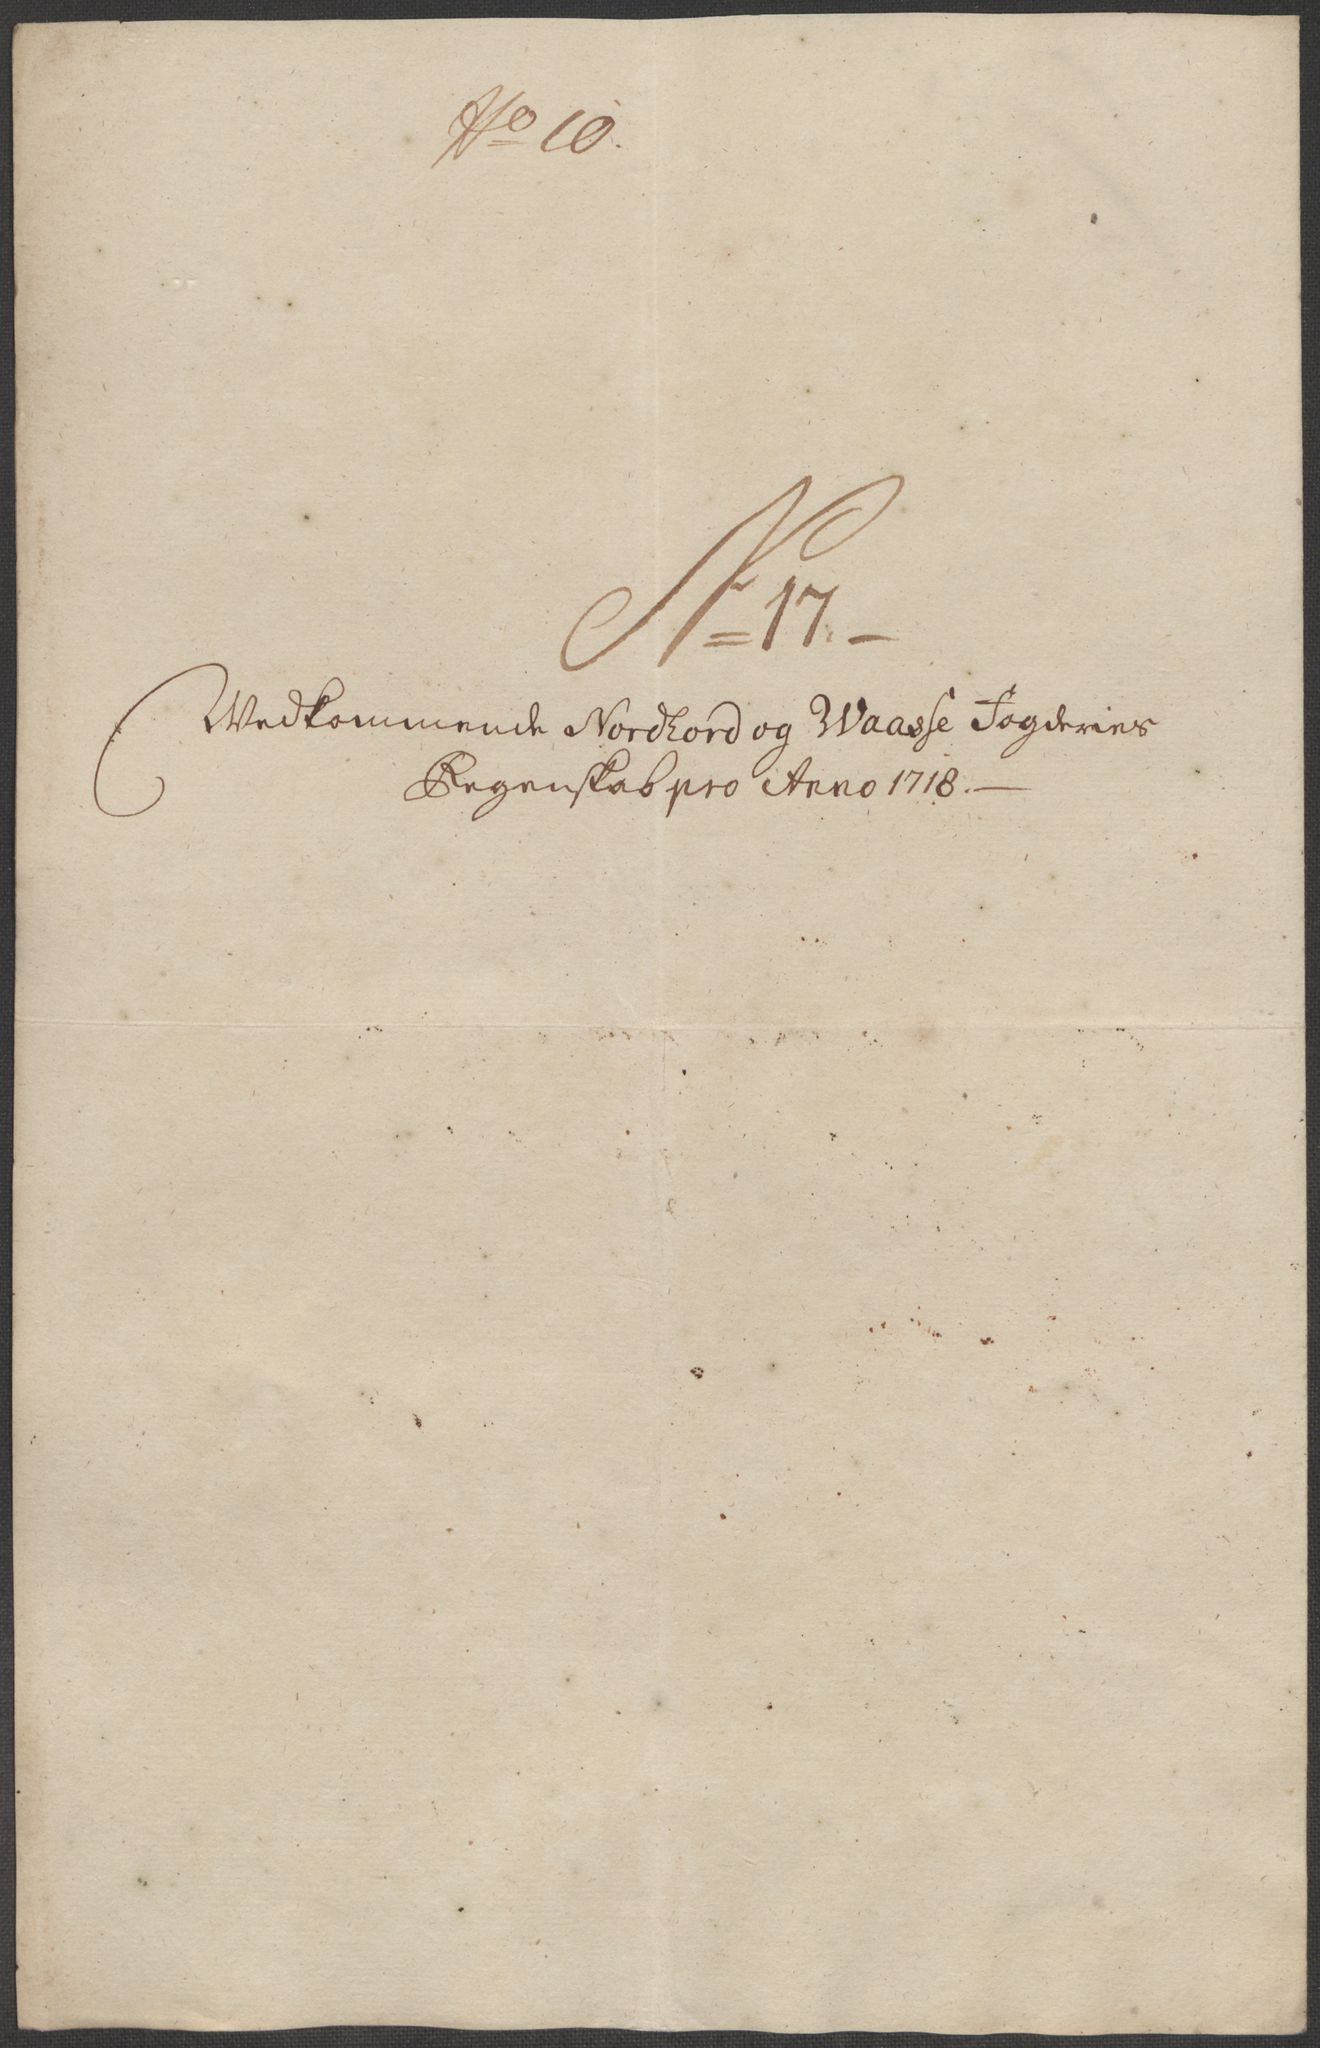 No 10.
N: 17. –
Vedkommende Nordhord og Waasse Fogderies
Regenskab pro Anno 1718. –